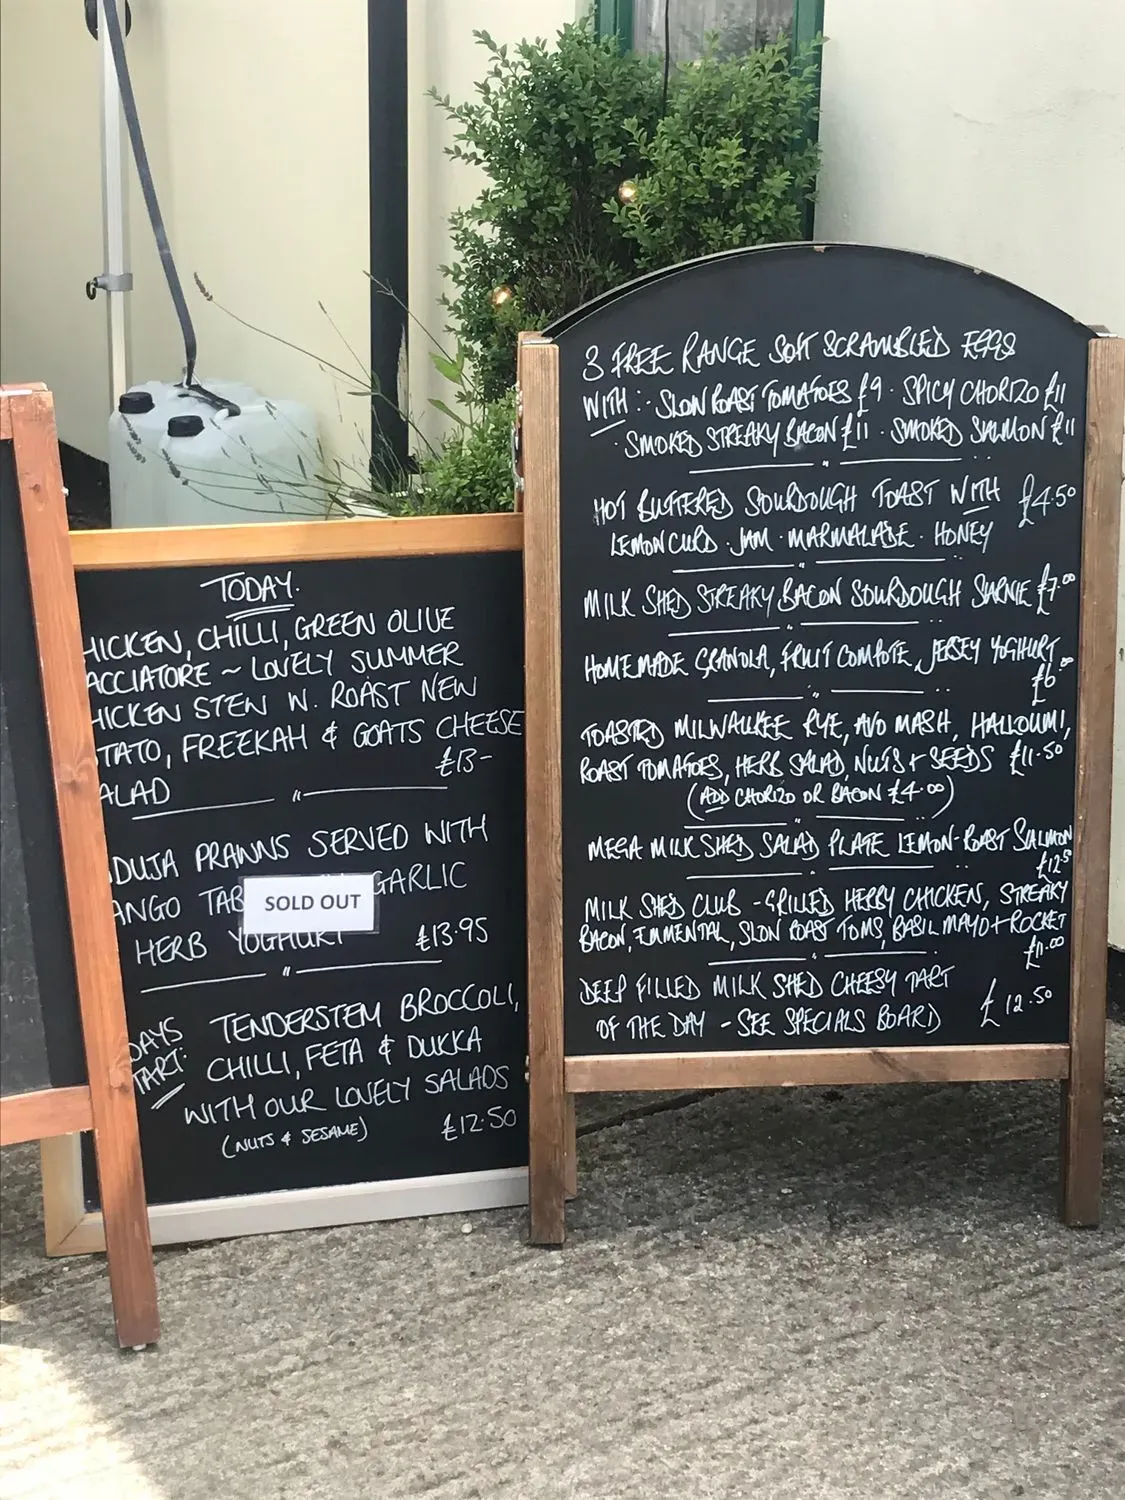 TODAY.
HICKEN, CHILLI, GREEN OLIVE
ACCIATORE ~ LOVELY SUMMER
HICKEN STEW W. ROAST NEW
TATO, FREEKAH & GOATS CHEESE
£13-
ALAD
DUJA PRAWNS SERVED WITH
ANGO TAB GARLIC
SOLD OUT
HERB YOGHURT £13.95
DAYS TENDERSTEM BROCCOLI,
TART: CHILLI, FETA & DUKKA
WITH OUR LOVELY SALADS
(NUTS & SESAME) £12.50
3 FREE RANGE SOFT SCRAMBLED EGGS
WITH:· SLOW ROAST TOMATOES £9 · SPICY CHORIZO £11
· SMOKED STREAKY BACON £11 · SMOKED SALMON £11
HOT BUTTERED SOURDOUGH TOAST WITH £4.50
LEMON CURD · JAM · MARMALADE · HONEY
MILK SHED STREAKY BACON SOURDOUGH SARNIE £7.00
HOMEMADE GRANOLA, FRUIT COMPOTE, JERSEY YOGHURT
£6.00
TOASTED MILWAUKEE RYE, AVO MASH, HALLOUMI,
ROAST TOMATOES, HERB SALAD, NUTS + SEEDS £11.50
(ADD CHORIZO OR BACON £4.00)
MEGA MILK SHED SALAD PLATE LEMON-ROAST SALMON
£12.5
MILK SHED CLUB - GRILLED HERBY CHICKEN, STREAKY
BACON, EMMENTAL, SLOW ROAST TOMS, BASIL MAYO + ROCKET
£11.00
DEEP FILLED MILK SHED CHEESY TART
OF THE DAY - SEE SPECIALS BOARD £12.50